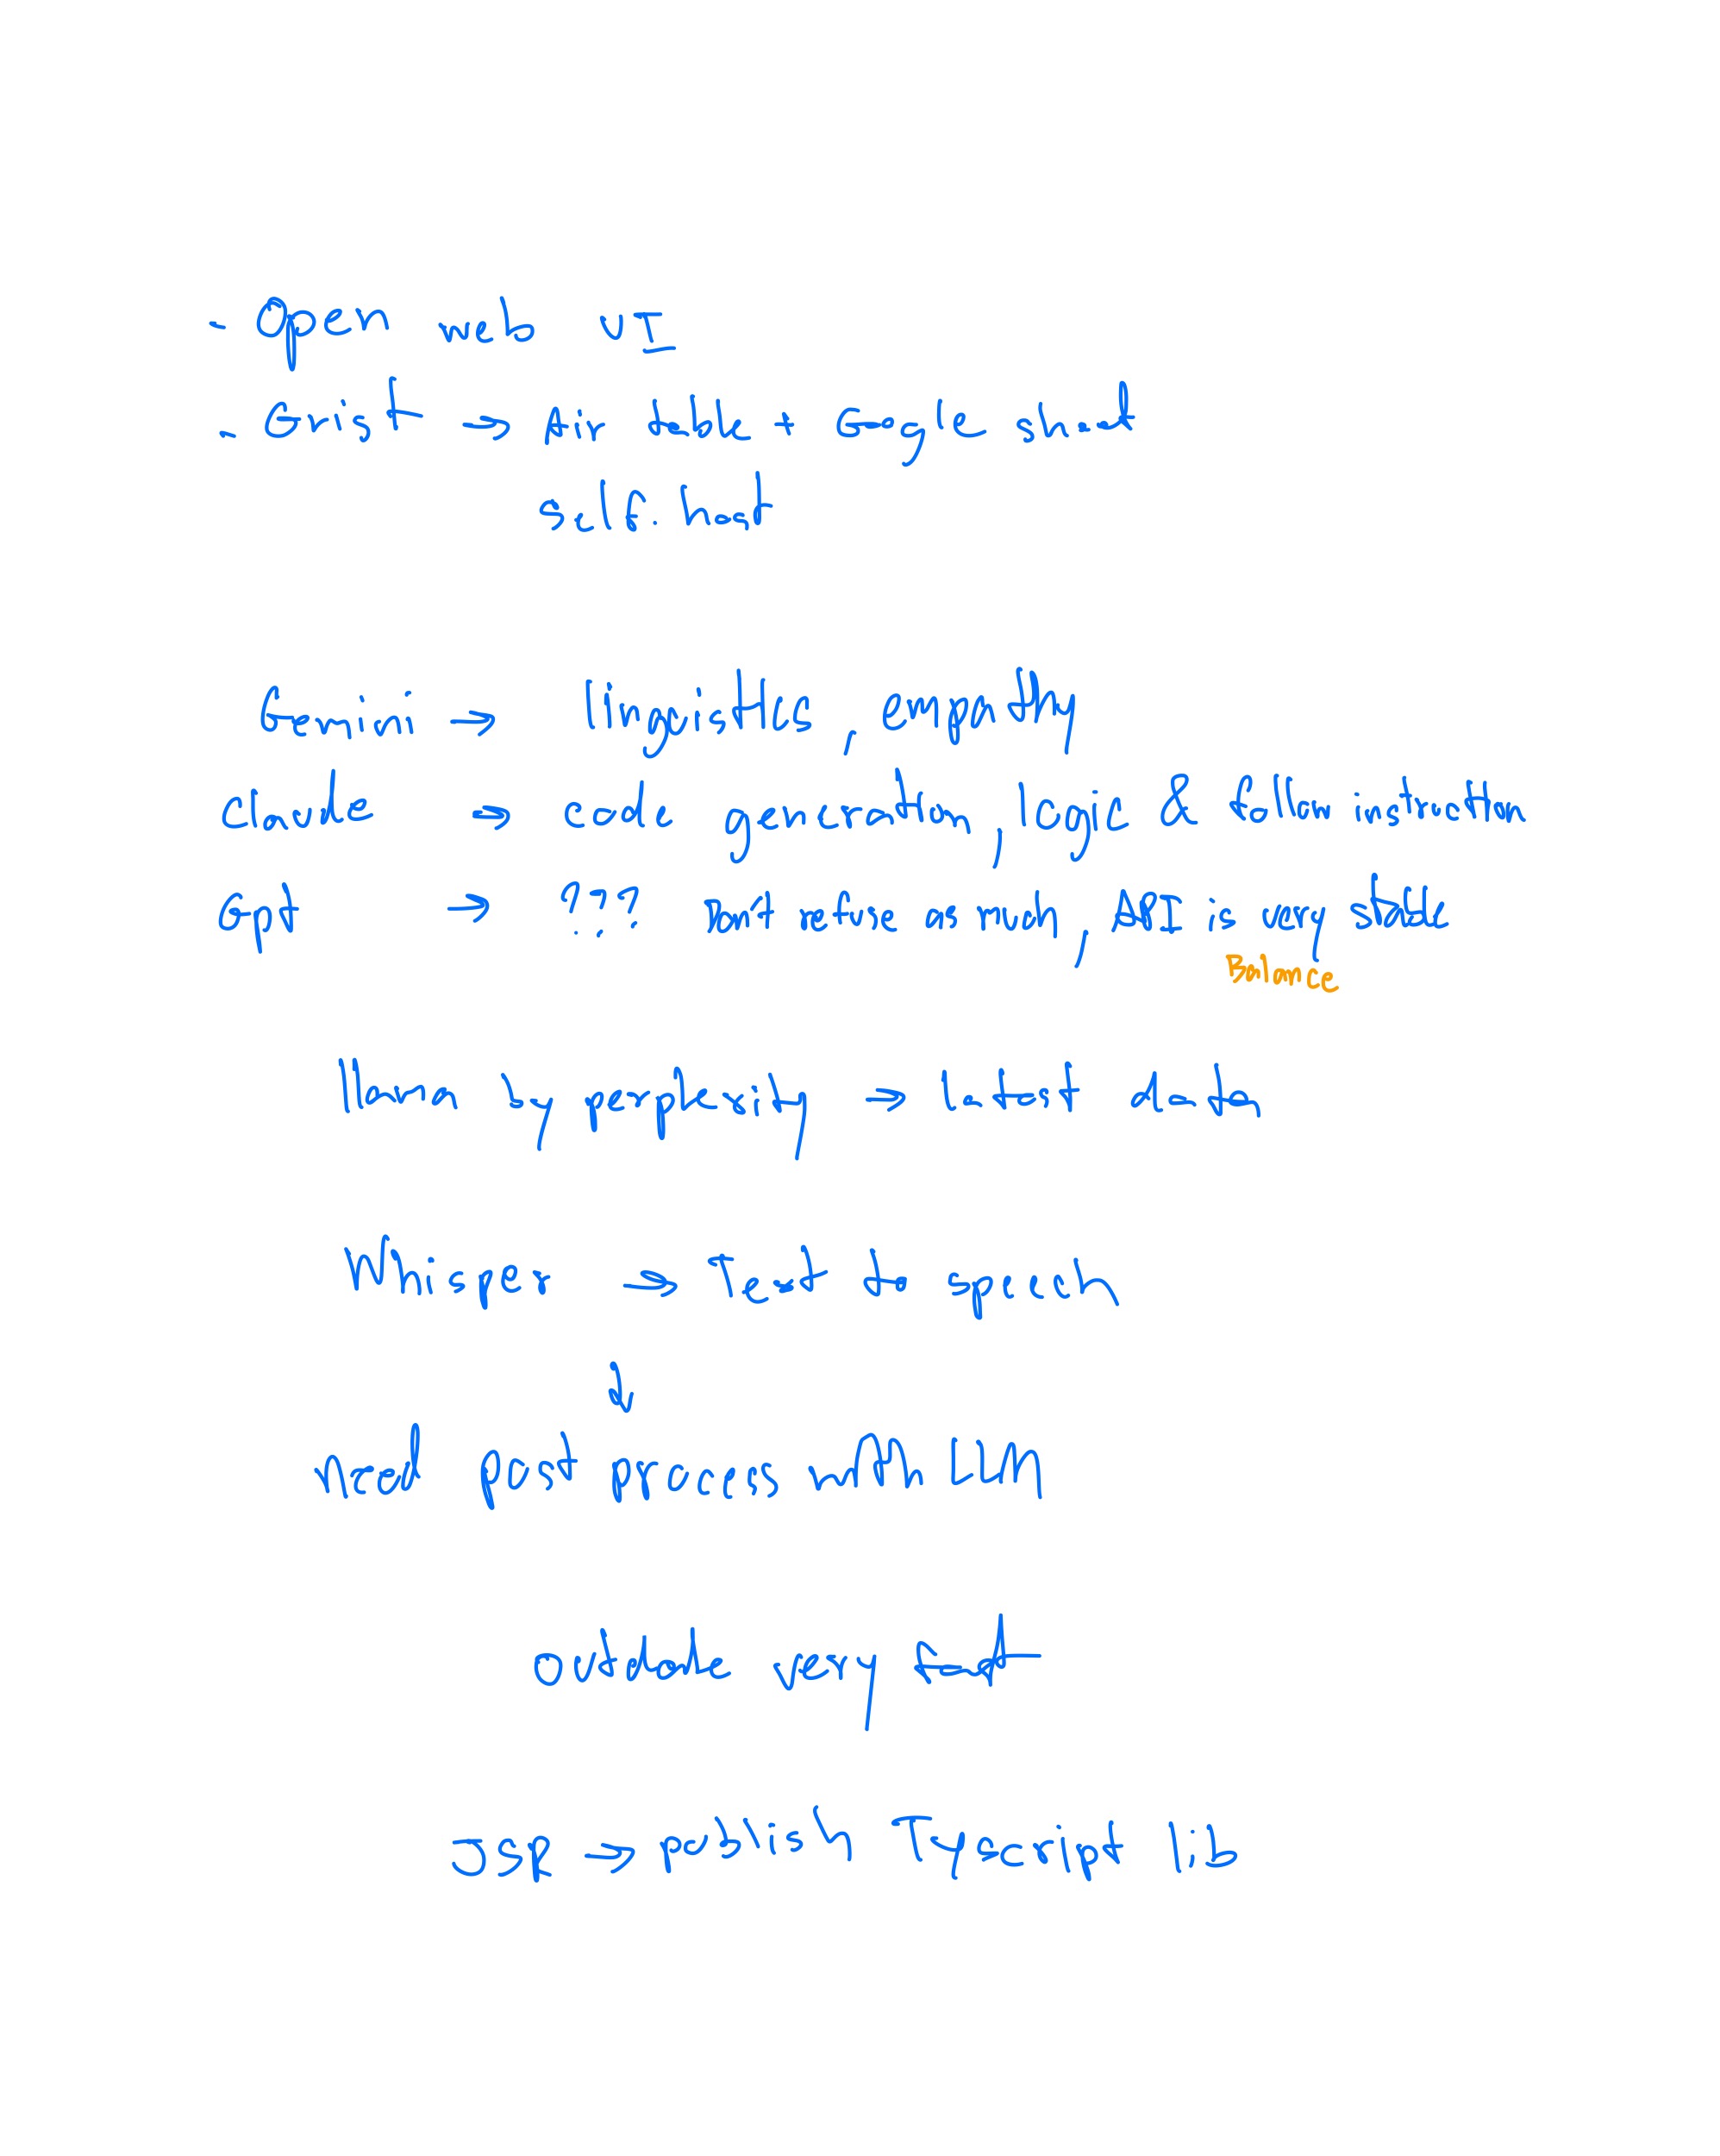 - Open web UI
- Grist → Air table + Google sheet
self. host
Gemini → linguistic, empathy
Claude → code generation, logic & follow instruction
Gpt → ??? Don't refuse as much, API is very stable
Balance
llama by perplexity → latest data
Whisper → Text to speech
↓
need post process with LLM
outdate very fast
JSR → publish Typescript lib